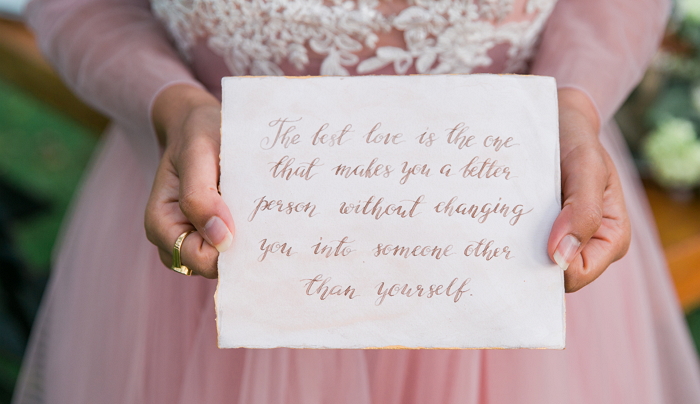 The best love is the one
that makes you a better
person without changing
you into someone other
than yourself.